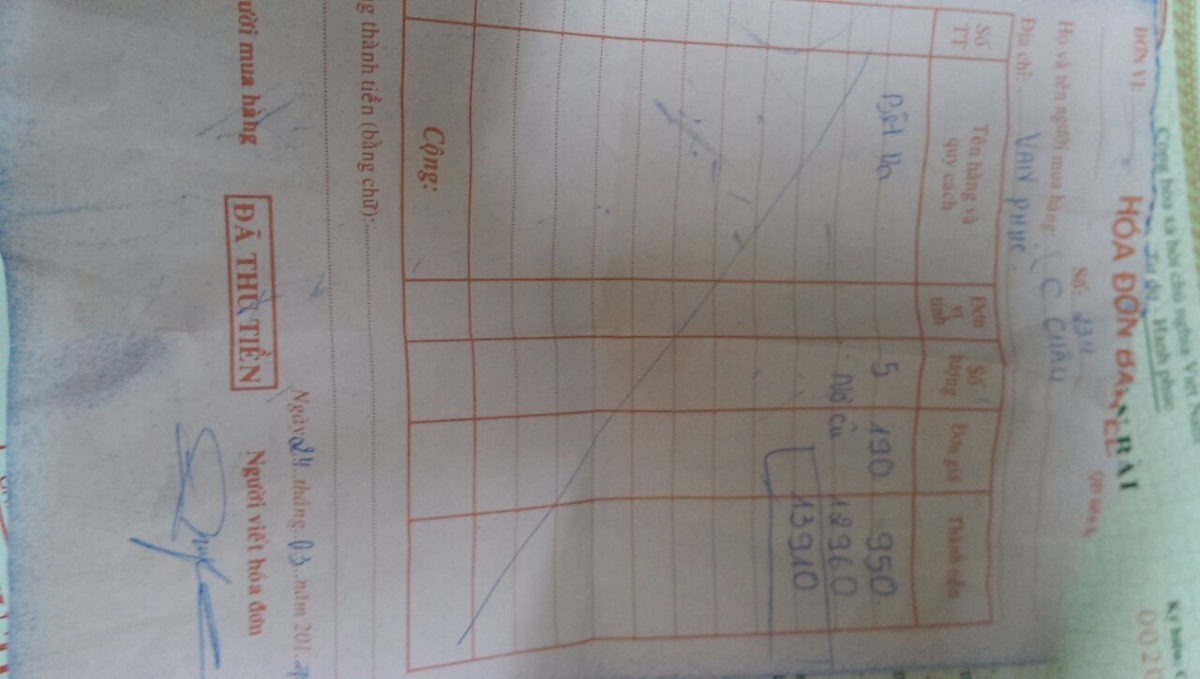 Cộng hòa xã hội chủ nghĩa Việt
Tự do - Hạnh phúc
ĐƠN VỊ:
HÓA ĐƠN BÁN LẺ
Số: 234
Họ và tên người mua hàng: (C CHÂU
Địa chỉ: VẠN PHÚC
Số TT Tên hàng và quy cách Đơn vị tính Số lượng Đơn giá Thành tiền
Bột Da 5 190 950
Nợ cũ 12960
13910
Cộng:
ng thành tiền (bằng chữ):
Ngày 24 tháng 03 năm 201
ười mua hàng ĐÃ THU TIỀN Người viết hóa đơn